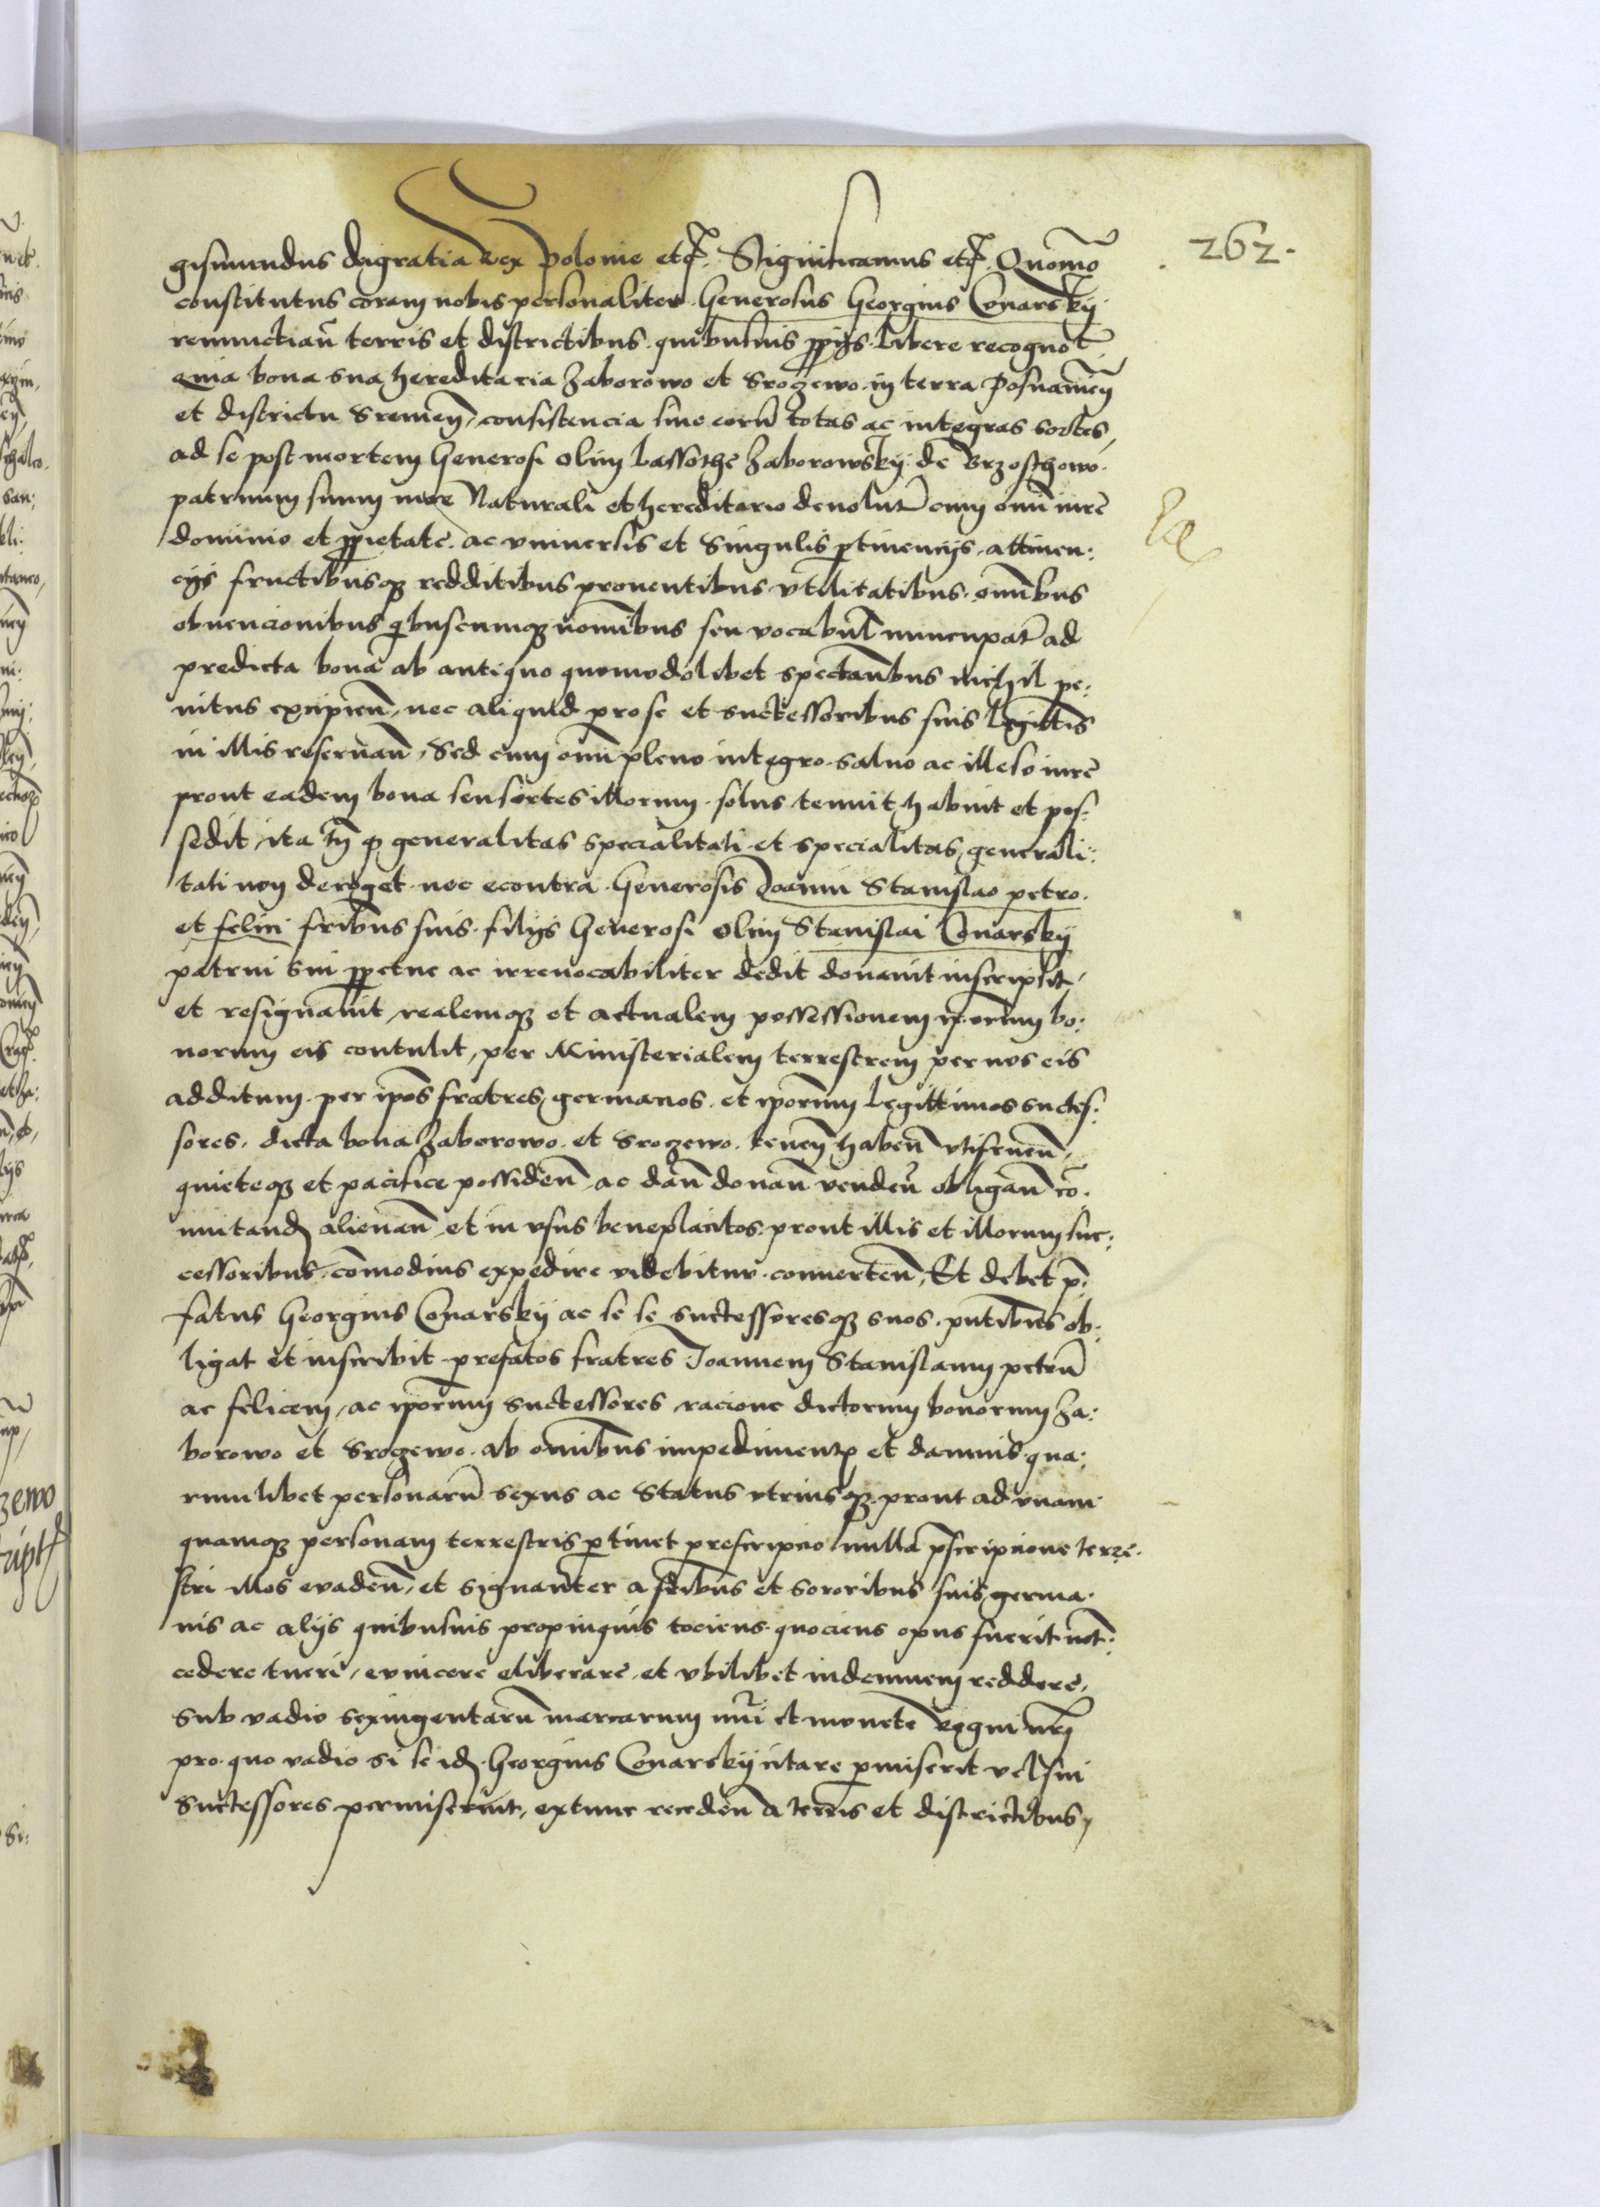 262.
gismundus deigratia Rex Polonie etc. Significamus etc. Quomo
constitutus coram nobis personaliter Generosus Georgius Conarskij
renunctian terris et districtibus quibusuis ppijs libere recognot
quia bona sua hereditaria Zaborowo et Srozewo in terra Posnanien
et districtu Sremen, consistencia siue eorum totas ac integras sortes
ad se post mortem Generosi olim Lassothe Zaborowskij de Brzosthowo
patruum suum iure Naturali et hereditario deuolut cum omni iure
dominio et ppietate ac vniuersis et singulis ptinencijs attinen:
cijs fructibusq redditibus prouentibus vtilitatibus omnibus
obuencionibus qibuscumq nomibus seu vocabul nuncupat ad
predicta bona ab antiquo quomodolibet spectantbus nichil pe:
nitus excipien, nec aliquid pro se et successoribus suis legittis
in illis reseruan, Sed cum omni pleno integro saluo ac illeso iure
prout eadem bona seu sortes illorum solus tenuit habuit et pos:
sedit ita tn q generalitas specialitati et specialitas generali:
tati non deroget nec econtra Generosis Joanni Stanislao petro
et felici fribus suis filijs Generosi olim Stanislai Conarskij
patrui sui ppetue ac irreuocabiliter dedit donauit inscripsit,
et resignauit, realemq et actualem possessionem ipsorum bo:
norum eis contulit, per Ministerialem terrestrem per nos eis
additum per ipos fratres germanos et iporum legittimos succes:
sores dicta bona Zaborowo et Srozewo tenen haben vtifruen,
quieteq et pacifice possiden, ac dan donan venden obligan co:
mutand alienan et in vsus beneplacitos prout illis et illorum suc:
cessoribus comodius expedire videbitur conuerten, Et debet p:
fatus Georgius Conarskij ac se se successoresq suos pntibus ob:
ligat et inscribit prefatos fratres Joannem Stanislaum petrum
ac felicem, ac iporum successores racione dictorum bonorum Za:
borowo et Srozewo ab omnibus impedimentis et damnis qua:
rumlibet personarum sexus ac status vtriusq prout ad vnam
quamq personam terrestris ptinet prescripcio nulla pscripcione terre:
stri illos euaden, et signanter a fribus et sororibus suis germa:
nis ac alijs quibusuis propinquis tociens quociens opus fuerit int:
cedere tueri, euincere eliberare et vbilibet indemnem reddere,
sub vadio sexingentarum marcarum nuri et monete Regni nri
pro quo vadio si se id Georgius Conarskij citare pmiserit vel sui
successores permiserint, extunc receden a terris et districtibus,